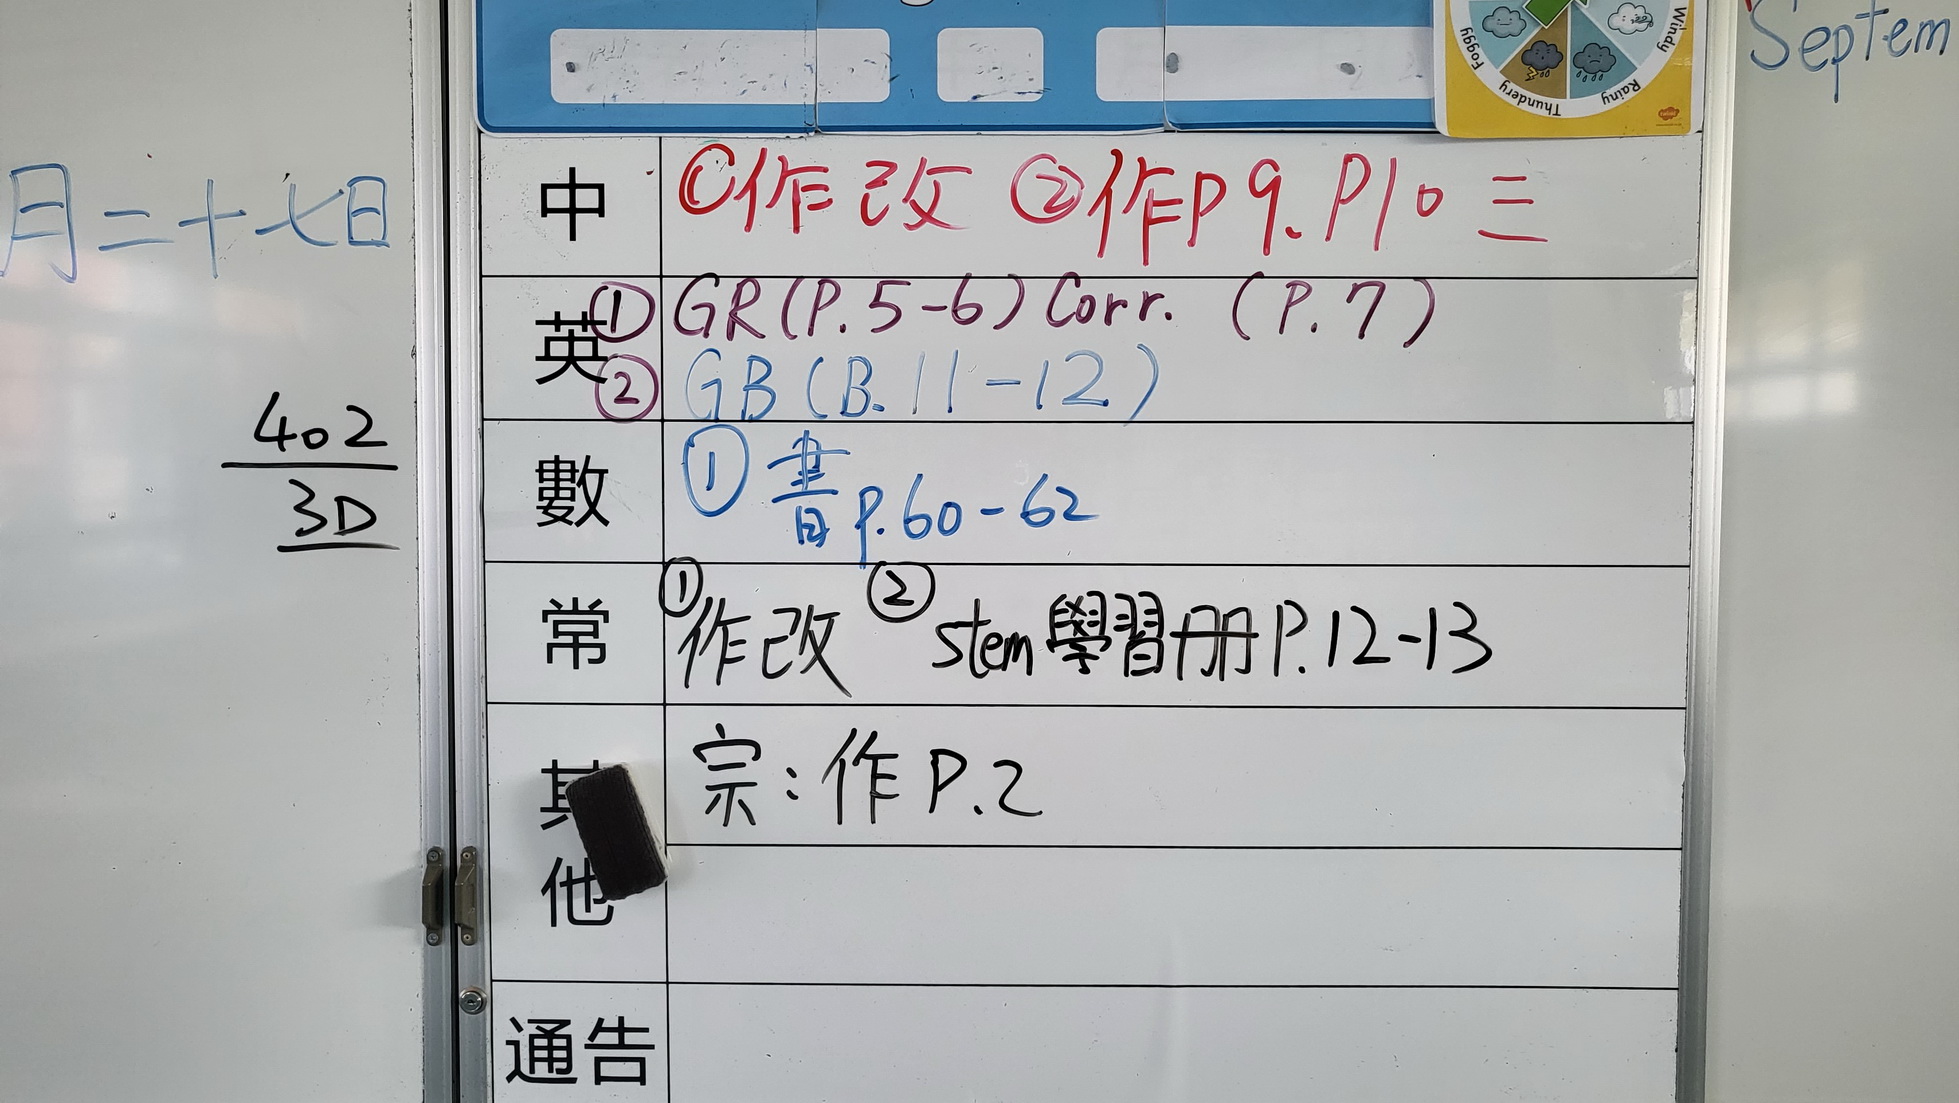 Septem
Foggy
Thundery
Rainy
Windy
月二十七日
402
3D
中 ①作改 ②作P9. P10 三
英 ① GR(P.5-6) Corr. (P.7)
② GB(B.11-12)
數 ① 書 p.60-62
常 ①作改 ② stem學習册P.12-13
其他 宗:作P.2
通告